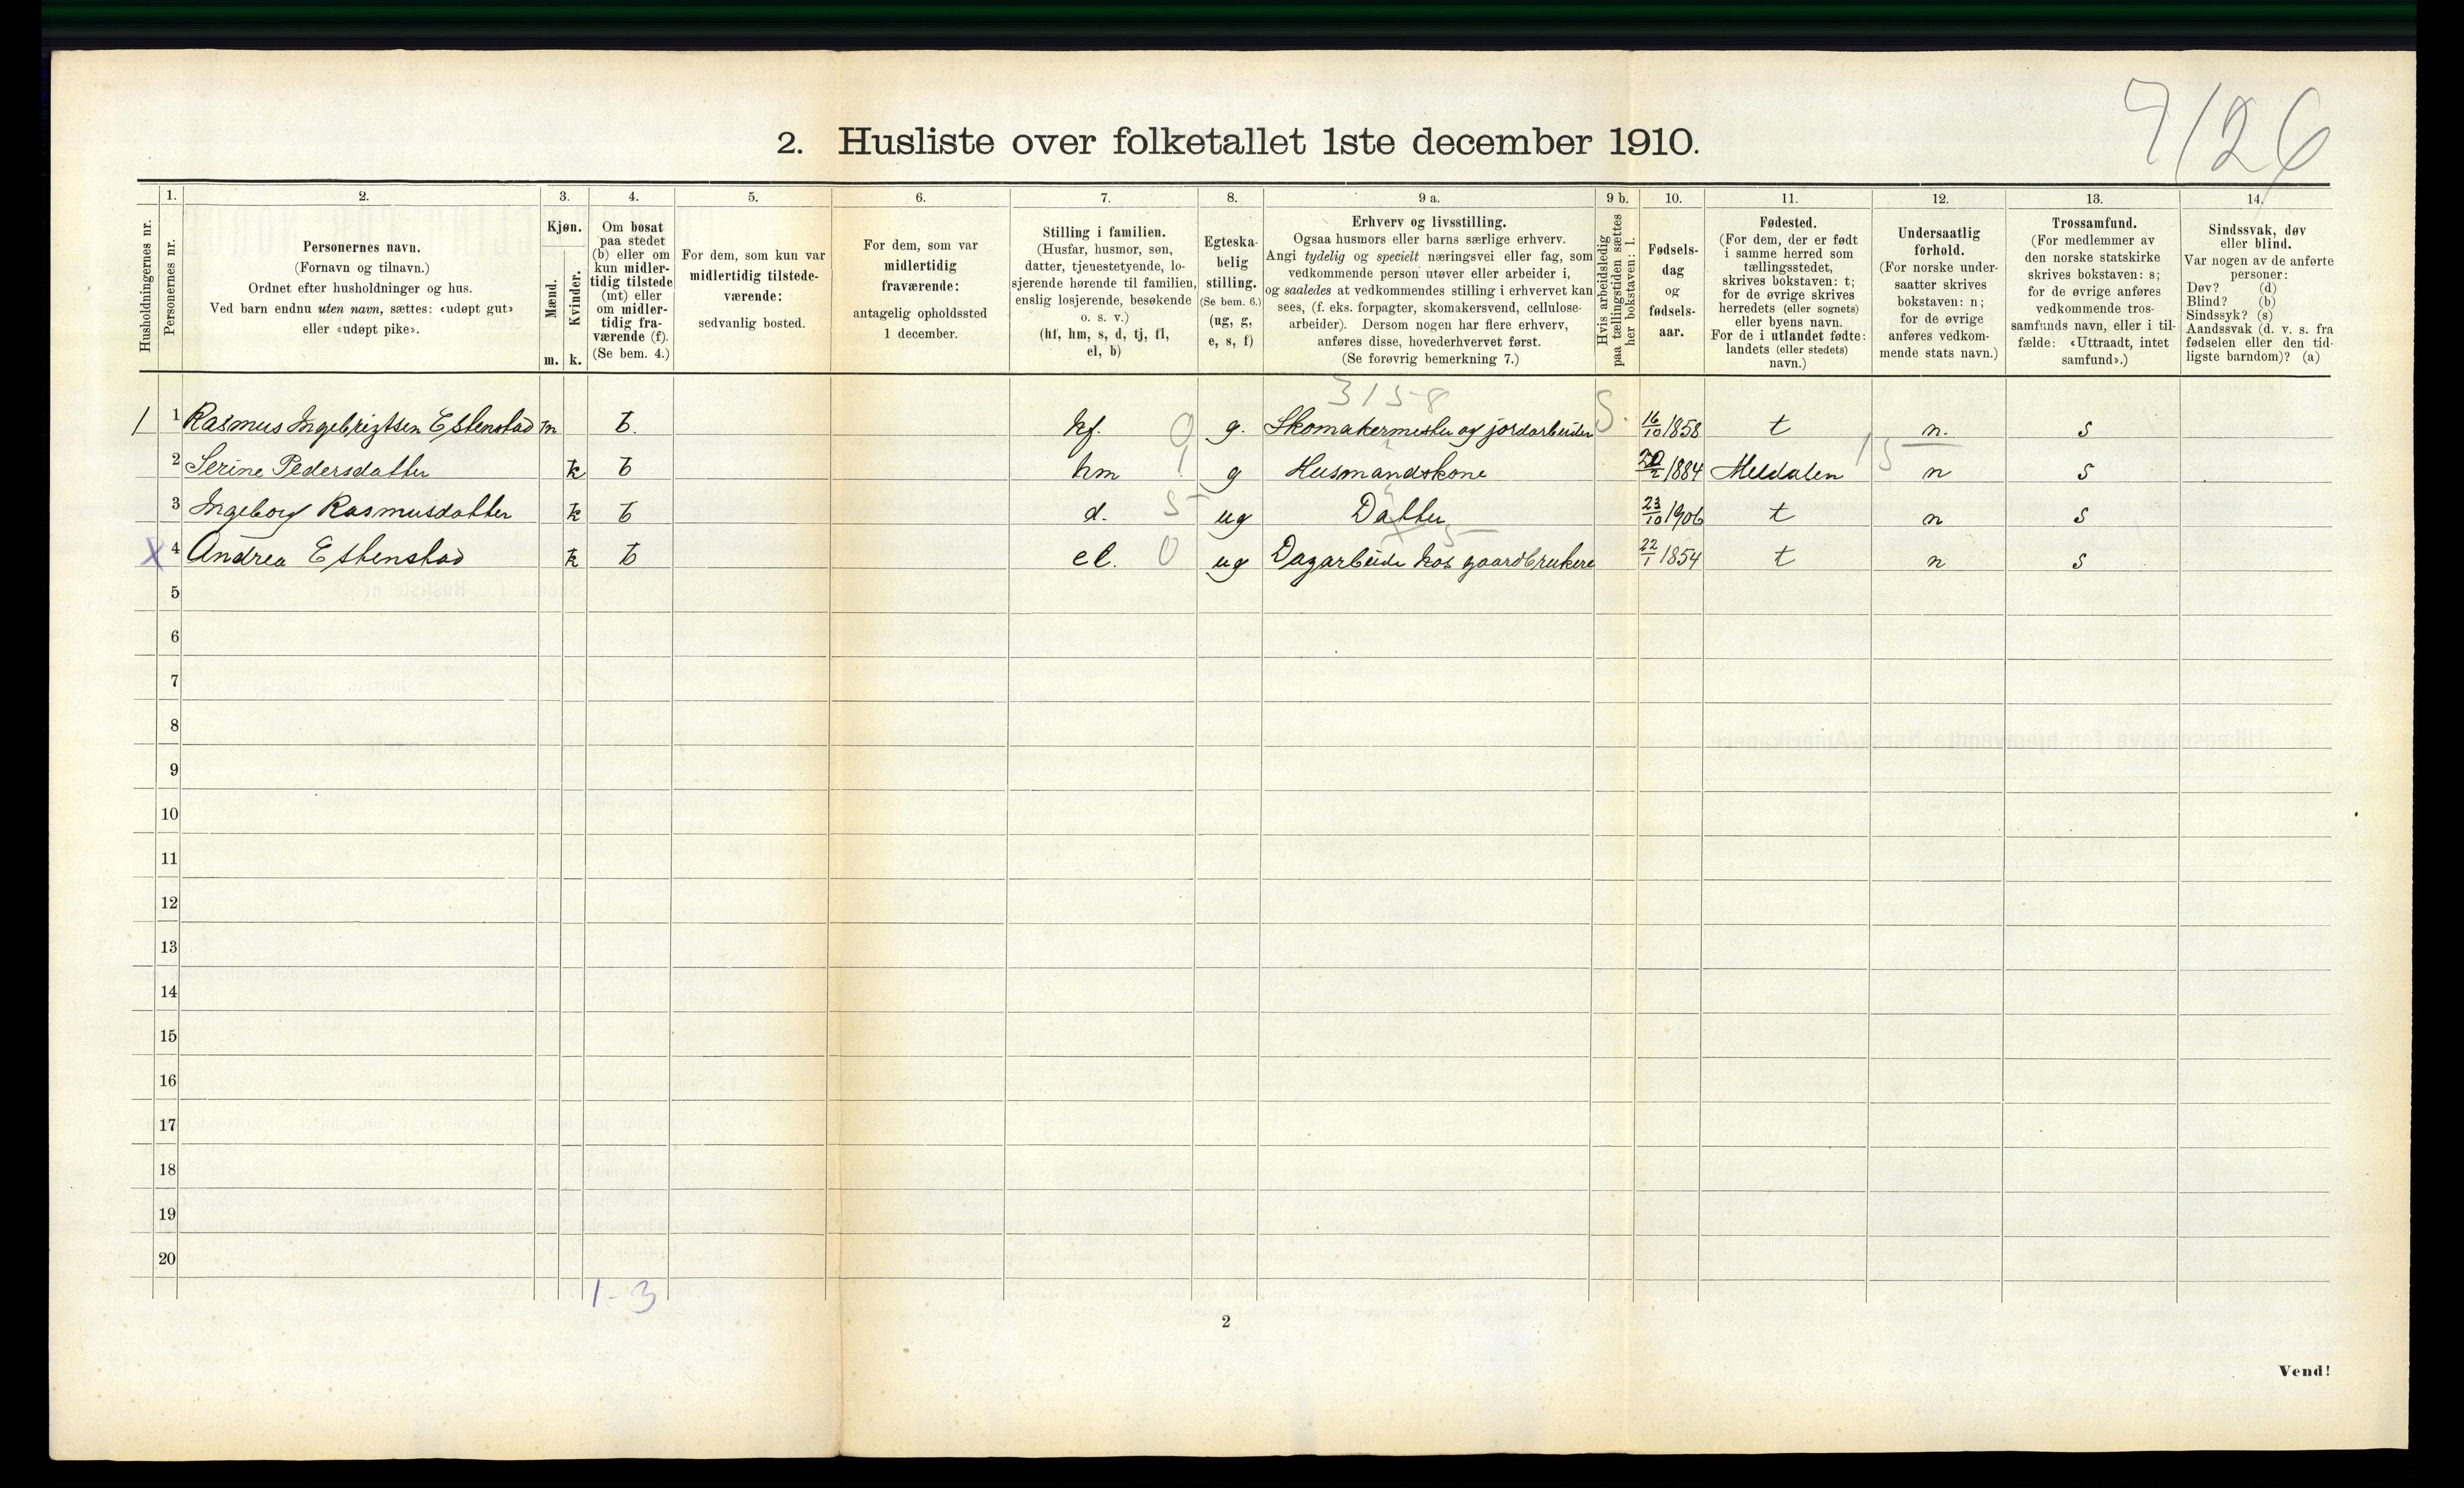 7/26
2. Husliste over folketallet 1ste december 1910.
Husholdningernes nr.
1.
Personernes nr.
2.
Personernes navn.
(Fornavn og tilnavn.)
Ordnet efter husholdninger og hus.
Ved barn endnu uten navn, sættes: «udøpt gut»
eller «udøpt pike».
3.
Kjøn.
Mænd.
Kvinder.
m. k.
4.
Om bosat
paa stedet
(b) eller om
kun midler-
tidig tilstede
(mt) eller
om midler-
tidig fra-
værende (f).
(Se bem. 4.)
5.
For dem, som kun var
midlertidig tilstede-
værende:
sedvanlig bosted.
6.
For dem, som var
midlertidig
fraværende:
antagelig opholdssted
1 december.
7.
Stilling i familien.
(Husfar, husmor, søn,
datter, tjenestetyende, lo-
sjerende hørende til familien,
enslig losjerende, besøkende
o. s. v.)
(hf, hm, s, d, tj, fl,
el, b)
8.
Egteska-
belig
stilling.
(Se bem. 6.)
(ug, g,
e, s, f)
9 a.
Erhverv og livsstilling.
Ogsaa husmors eller barns særlige erhverv.
Angi tydelig og specielt næringsvei eller fag, som
vedkommende person utøver eller arbeider i,
og saaledes at vedkommendes stilling i erhvervet kan
sees, (f. eks. forpagter, skomakersvend, cellulose-
arbeider). Dersom nogen har flere erhverv,
anføres disse, hovederhvervet først.
(Se forøvrig bemerkning 7.)
9 b.
Hvis arbeidsledig
paa tællingstiden sættes
her bokstaven: l.
10.
Fødsels-
dag
og
fødsels-
aar.
11.
Fødested.
(For dem, der er født
i samme herred som
tællingsstedet,
skrives bokstaven: t;
for de øvrige skrives
herredets (eller sognets)
eller byens navn.
For de i utlandet fødte:
landets (eller stedets)
navn.)
12.
Undersaatlig
forhold.
(For norske under-
saatter skrives
bokstaven: n;
for de øvrige
anføres vedkom-
mende stats navn.)
13.
Trossamfund.
(For medlemmer av
den norske statskirke
skrives bokstaven: s;
for de øvrige anføres
vedkommende tros-
samfunds navn, eller i til-
fælde: «Uttraadt, intet
samfund».)
14.
Sindssvak, døv
eller blind.
Var nogen av de anførte
personer:
Døv? (d)
Blind? (b)
Sindssyk? (s)
Aandssvak (d. v. s. fra
fødselen eller den tid-
ligste barndom)? (a)
3158
1 1 Rasmus Ingebrigtsen Estenstad m b. hf. 0 g. Skomakermester og jordarbeider S. 16/10 1858 t n. s
2 Serine Pedersdatter k b hm 1 g Husmandskone 20/2 1884 Meldalen 15 n s
3 Ingeborg Rasmusdatter k b d. 5 ug Datter 23/10 1906 t n s
X 4 Andrea Estenstad k b el. 0 ug Dagarbeide hos gaardbrukere 22/1 1854 t n s
5
6
7
8
9
10
11
12
13
14
15
16
17
18
19
20
1-3
2
Vend!